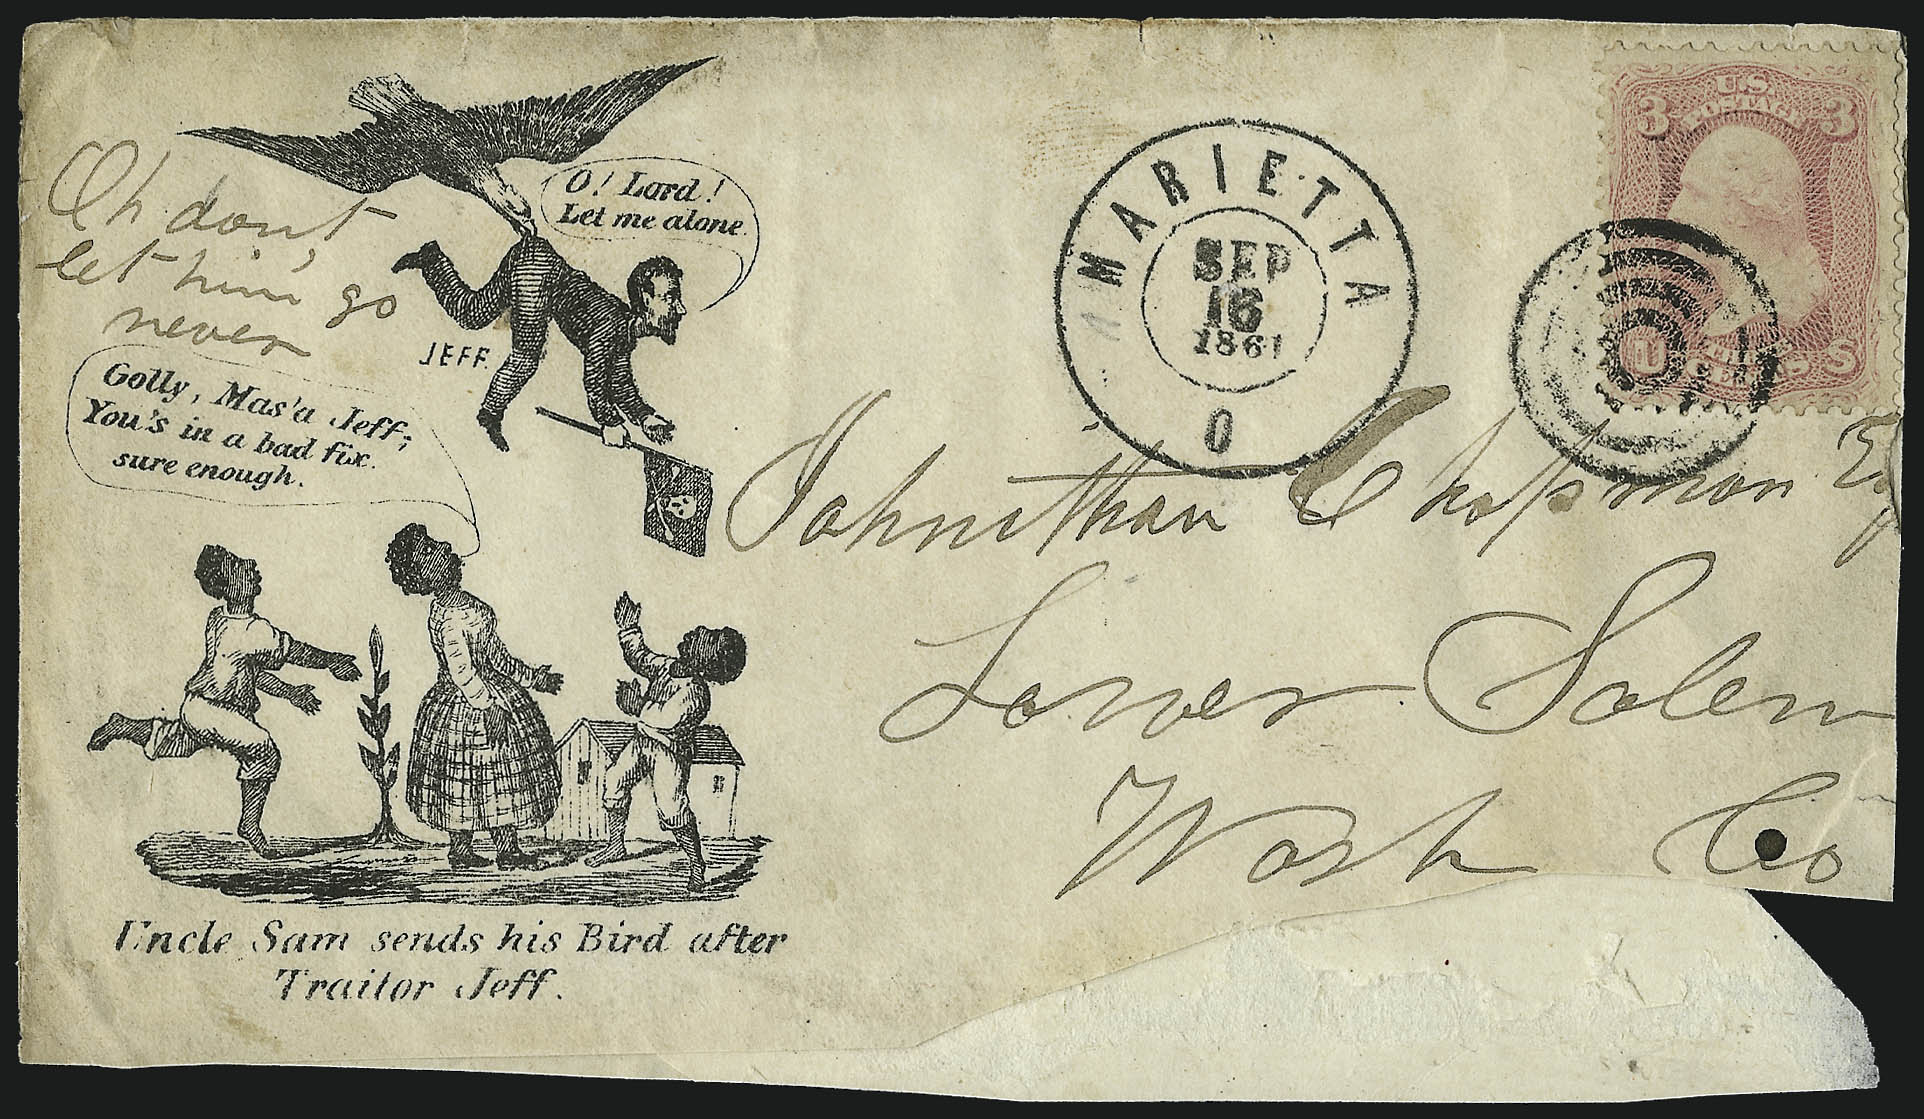 Oh don't
let him go
never
O! Lord!
Let me alone.
JEFF.
Golly, Mas'a Jeff;
You's in a bad fix.
sure enough.
Uncle Sam sends his Bird after
Traitor Jeff.
MARIETTA
SEP
16
1861
O
U.S.
POSTAGE
3 3
U S
Johnithan Chapman Esq
Lower Salem
Wash Co